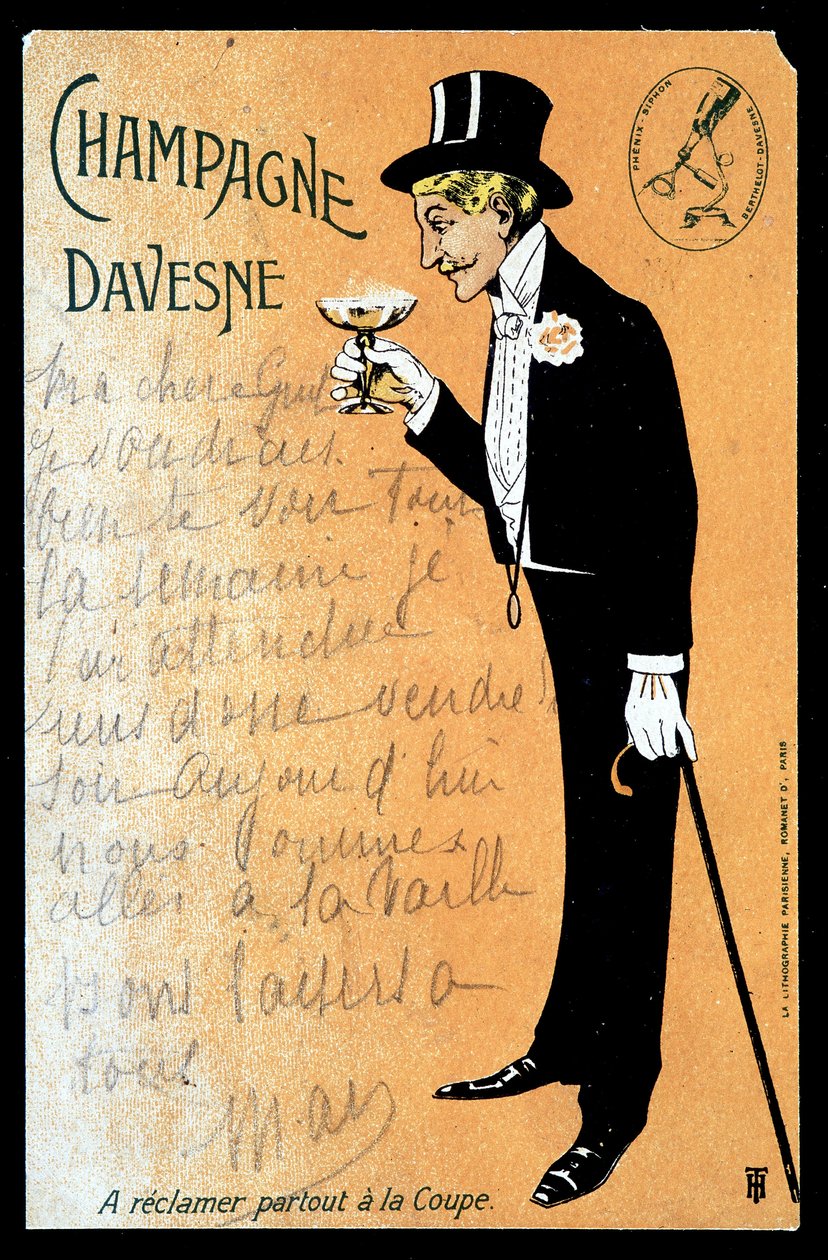 CHAMPAGNE
DAVESNE
PHÉNIX-SIPHON
BERTHELOT-DAVESNE
Ma chere
je voudrais
bien te voir Toute
la semaine je
t'ai attendue
viens donc vendredi
soir aujourd'hui
nous sommes
aller a la
bons baisers a
tous
LA LITHOGRAPHIE PARISIENNE, ROMANET Dr, PARIS
A réclamer partout à la Coupe.
TH